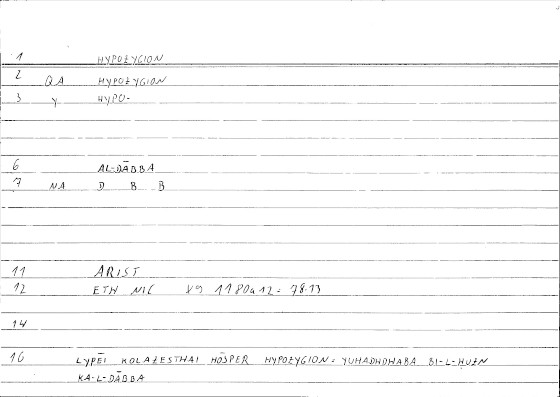 1 HYPOZYGION
2 QA HYPOZYGION
3 Y HYPO-
6 AL-DĀBBA
7 NA D B B
11 ARIST
12 ETH NIC X9 1180a12 = 78.13
14
16 LYPĒI KOLAZESTHAI HŌSPER HYPOZYGION = YUHADHDHABA BI-L-ḤUZN
KA-L-DĀBBA